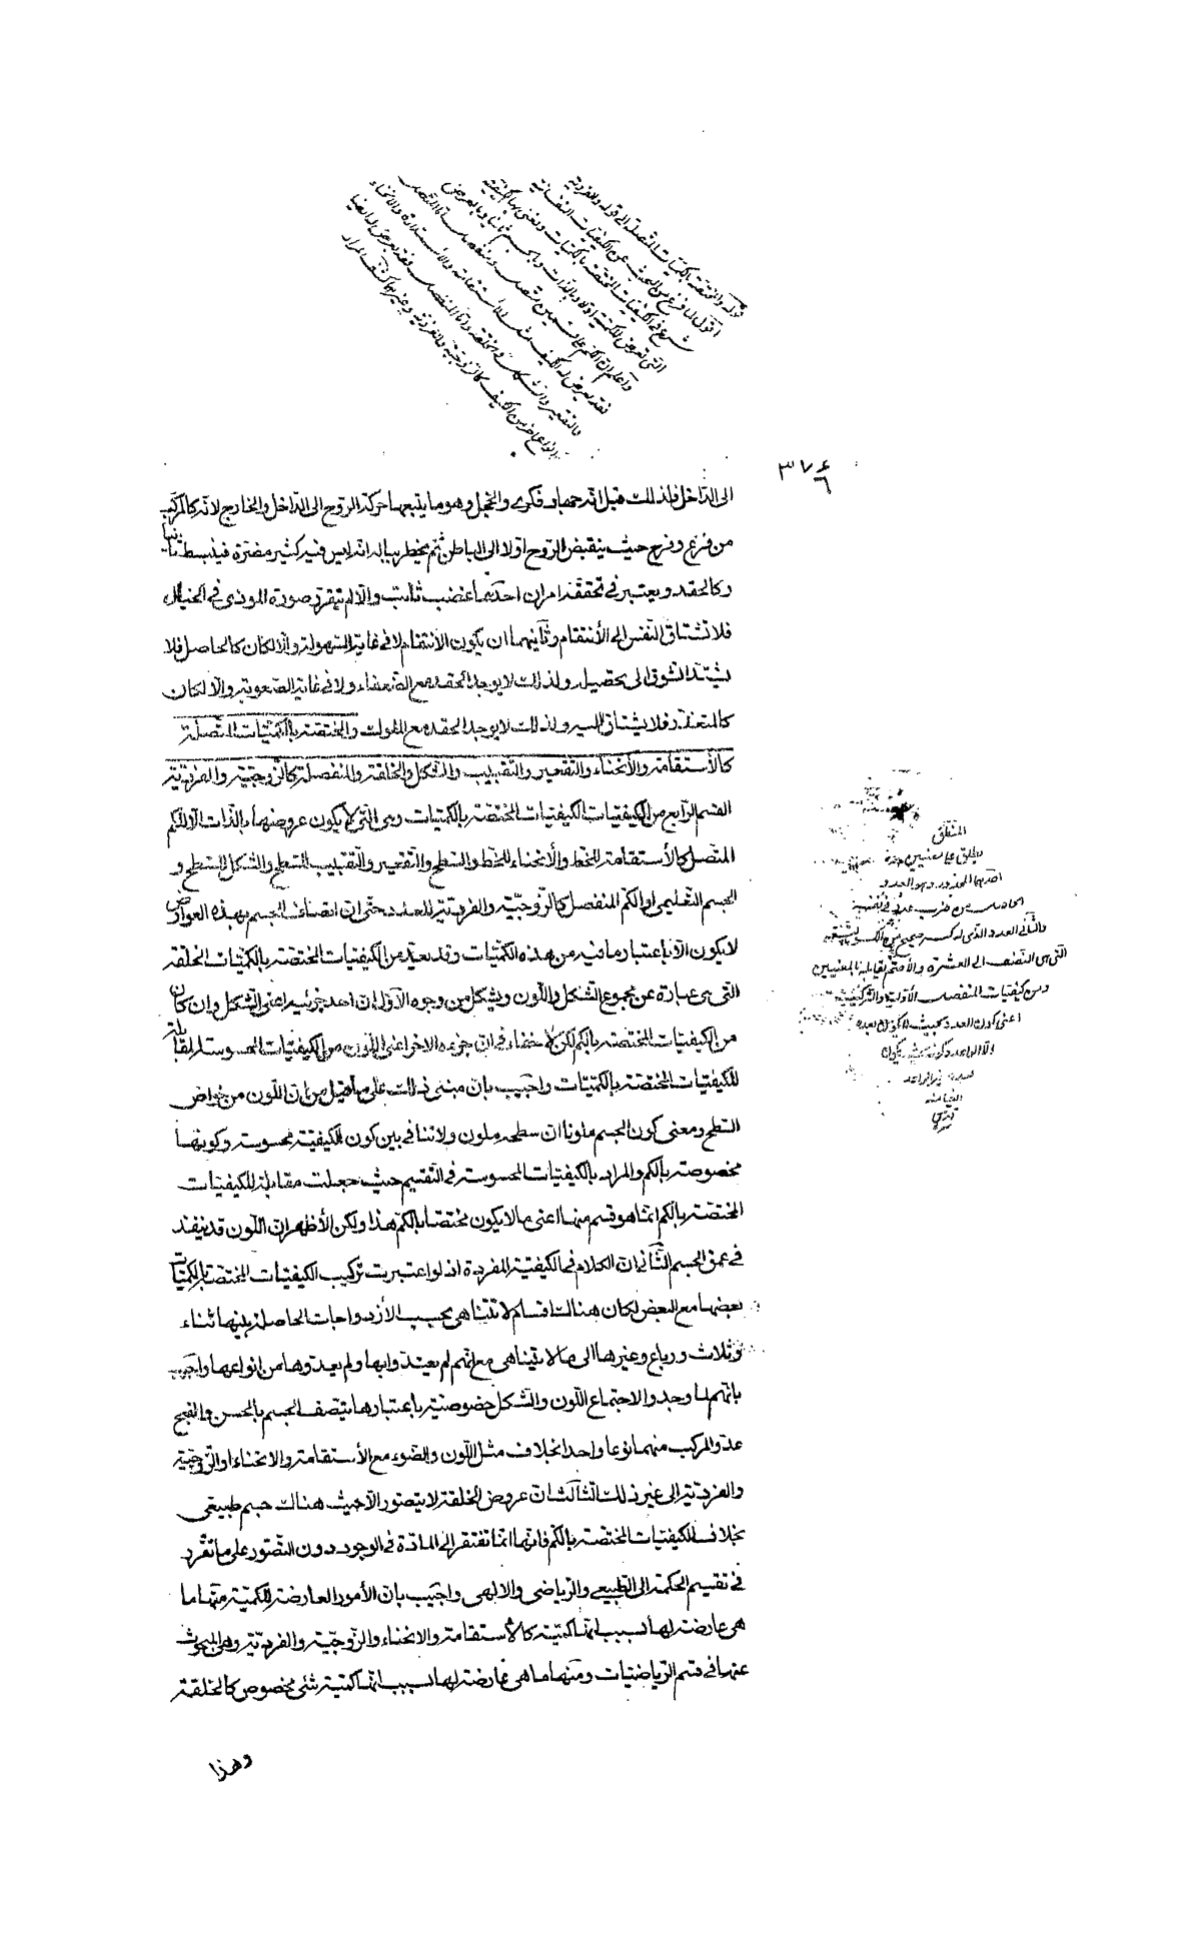 قوله والمختصة بالكميات المتصلة الى قوله والفردية
اقول لما فرغ من البحث عن الكيفيات النفسانية
شرع فى الكيفيات المختصة بالكميات ونعنى بها الكيفية
التى تعرض للكمية اولا وبالذات وبالجسم ثانيا وبالعرض
واعلم ان الكم على قسمين متصل ومنفصل اما المتصل
فقد يعرض له الكيف مثل الاستقامة والاستدارة والانحناء
والتقعير والشكل والخلقة واما المنفصل فقد يعرض له ايضا
انواع اخر من الكيف كالزوجية والفردية وغيرها
٣٧٤
٦
الى الداخل فلذلك قيل انه جهاد فكرى والخجل وهو ما يتبعها حركة الروح الى الداخل والخارج لانه كالمركب
من فزع وفرح حيث ينقبض الروح اولا الى الباطن ثم يخطر بباله انه ليس فيه كثير مضرة فينبسط ثانيا
وكالحقد ويعتبر فى تحققه امران احدهما غضب ثابت والا لم يتقرر صورة الموذى فى الخيال
فلا تشتاق النفس الى الأنتقام وثانيهما ان يكون الأنتقام لا فى غاية السهولة والا لكان كالحاصل فلا
يشتد الشوق الى تحصيله ولذلك لا يوجد الحقد مع الضعفاء ولا فى غاية الصعوبة والا لكان
كالمتعذر فلا يشتاق اليه ولذلك لا يوجد الحقد مع الملوك والمختصة بالكميات المتصلة
كالأستقامة والأنحناء والتقعير والتقبيب والشكل والخلقة والمنفصلة كالزوجية والفردية
القسم الرابع من الكيفيات الكيفيات المختصة بالكميات وهى التى لا يكون عروضها بالذات الا للكم
المتصل كالأستقامة للخط والأنحناء للخط والسطح والتقعير والتقبيب للسطح والشكل للسطح و
الجسم التعليمى او الكم المنفصل كالزوجية والفردية للعدد حتى ان اتصاف الجسم بهذه العوارض
لا يكون الا باعتبار ما فيه من هذه الكميات وقد يعد من الكيفيات المختصة بالكميات الخلقة
التى هى عبارة عن مجموع الشكل واللون ويشكل من وجوه الاول ان احد جزئيه اعنى الشكل وان كان
من الكيفيات المختصة بالكم لكن لا خفاء فى ان جزءه الاخر اعنى اللون من الكيفيات المحسوسة المقابلة
للكيفيات المختصة بالكميات واجيب بان مبنى ذلك على ما قيل من ان اللون من خواص
السطح ومعنى كون الجسم ملونا ان سطحه ملون ولا تنافى بين كون الكيفية محسوسة وكونها
مخصوصة بالكم والمراد بالكيفيات المحسوسة فى التقسيم حيث جعلت مقابلة للكيفيات
المختصة بالكم انما هو قسم منها اعنى ما لا يكون مختصا بالكم هذا ولكن الأظهر ان اللون قد ينفذ
فى عمق الجسم الثانى ان الكلام فى الكيفية المفردة اذ لو اعتبرت تركيب الكيفيات المختصة بالكميات
بعضها مع البعض لكان هنالك اقسام لا تتناهى بحسب الأزدواجات الحاصلة بينها ثناء
وثلاث ورباع وغيرها الى ما لا يتناهى مع انهم لم يعتدوا بها ولم يعدوها من انواعها واجيب
بانهم لما وجدوا لاجتماع اللون والشكل خصوصية باعتبارها يتصف الجسم بالحسن والقبح
عدوا المركب منهما نوعا واحدا بخلاف مثل اللون والضوء مع الأستقامة والانحناء او الزوجية
والفردية الى غير ذلك الثالث ان عروض الخلقة لا يتصور الا حيث هناك جسم طبيعى
بخلاف الكيفيات المختصة بالكم فانها انما تفتقر الى المادة فى الوجود دون التصور على ما تقرر
فى تقسيم الحكمة الى الطبيعى والرياضى والالهى واجيب بان الأمور العارضة للكمية منها ما
هى عارضة لها بسبب انها كمية كالأستقامة والانحناء والزوجية والفردية وهى المبحوث
عنها فى قسم الرياضيات ومنها ما هى عارضة لها بسبب انها كمية شئ مخصوص كالخلقة
وهذا
المنطق
يطلق على معنيين
احدهما المجذور وهو العدد
الحاصل من ضرب عدد فى نفسه
والثانى العدد الذى له كسر صحيح من الكسور التسعة
التى هى النصف الى العشرة والاصم يقابله بالمعنيين
ومن كيفيات المنفصل الأولية والتركيبية
اعنى كون العدد بحيث لا يعده
الا الواحد وكونه بحيث يكون